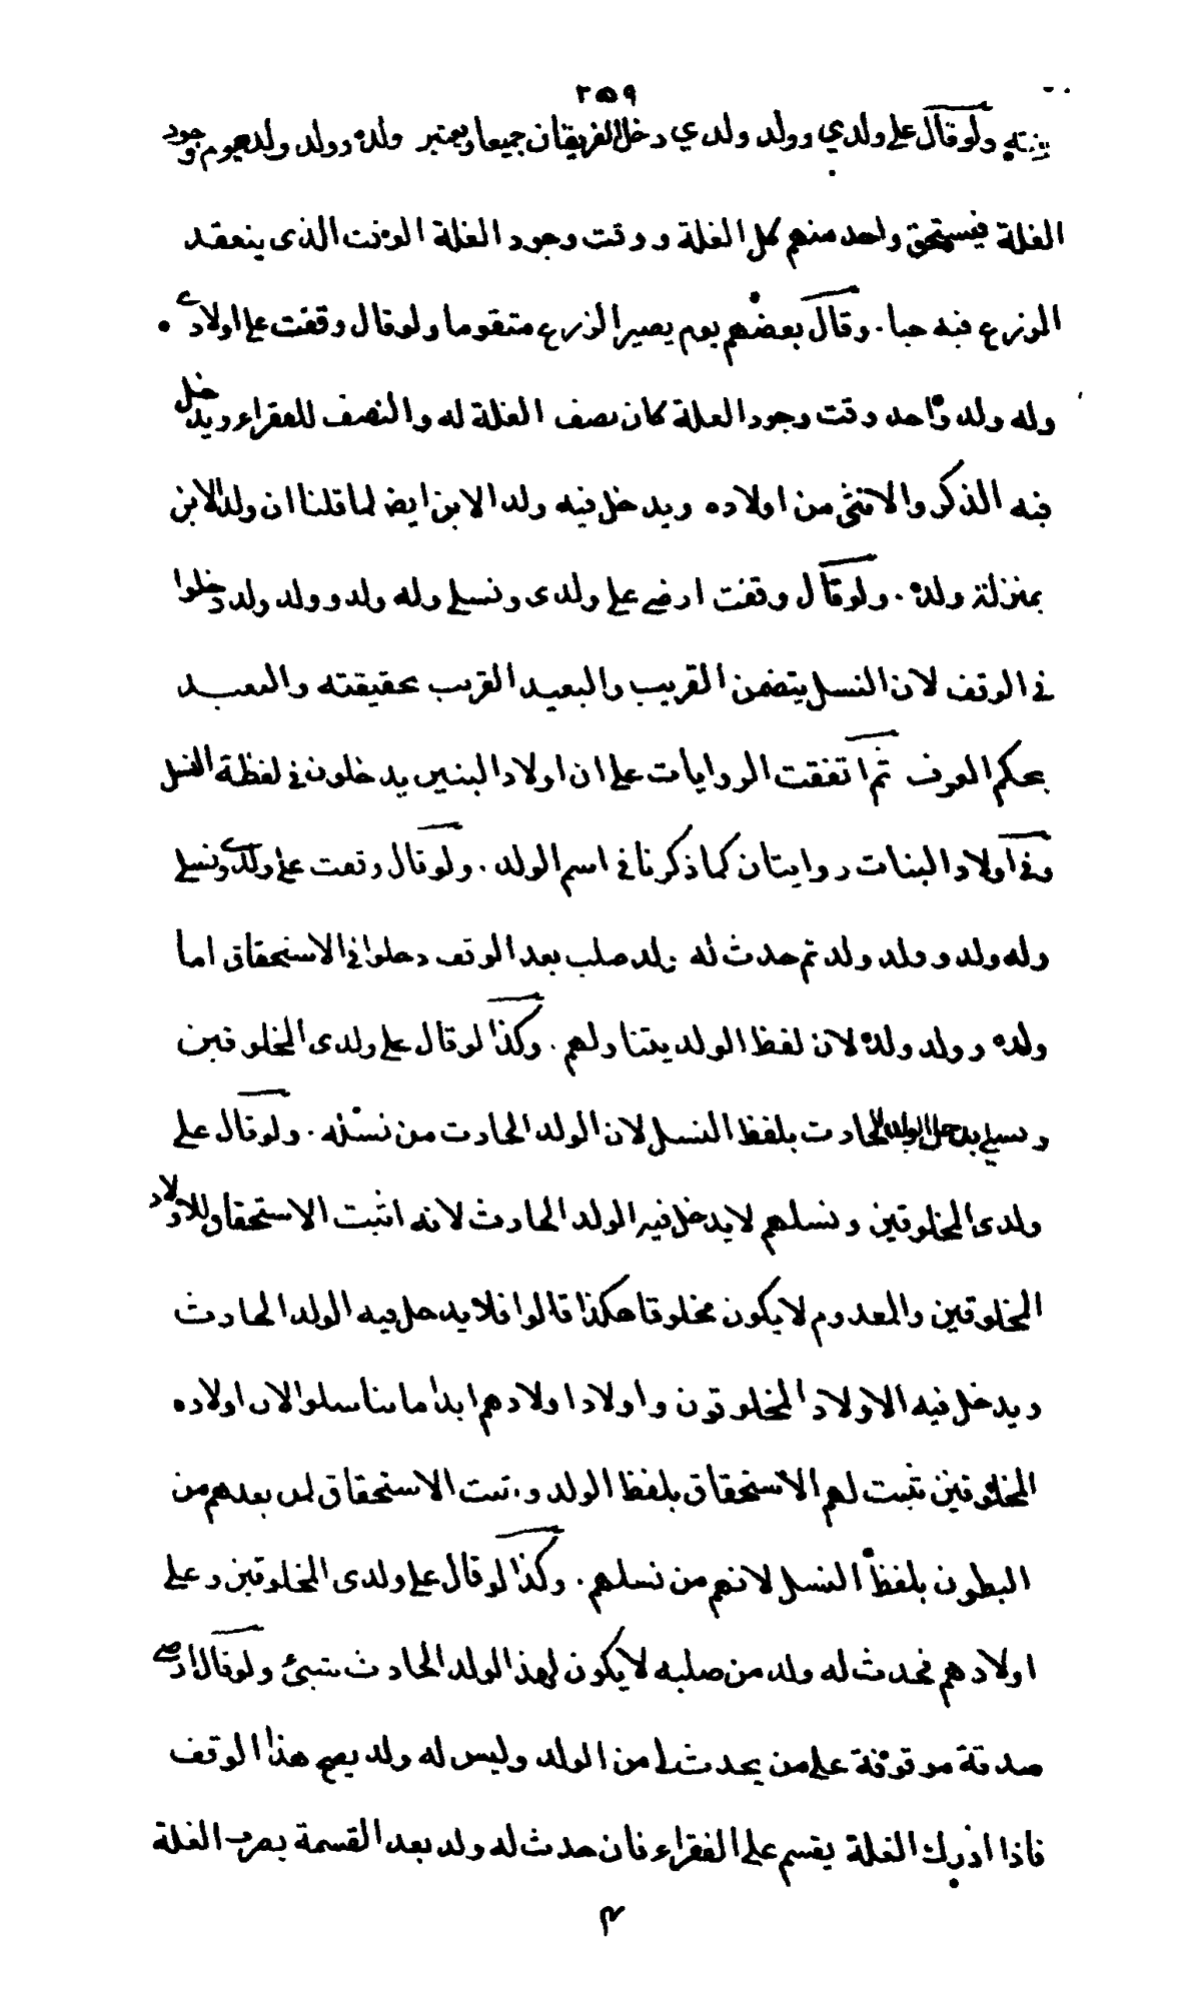 ٢٥٩
ولو قال على ولدي وولد ولدي دخل الفريقان جميعا ويعتبر ولده وولد ولده يوم وجود
الغلة فيستحق واحد منهم كل الغلة ووقت وجود الغلة الوقت الذى ينعقد
الزرع فيه حبا. وقال بعضهم يوم يصير الزرع متقوما ولو قال وقفت على اولادي
وله ولد واحد وقت وجود الغلة كان نصف الغلة له والنصف للفقراء ويدخل
فيه الذكر والانثى من اولاده ويدخل فيه ولد الابن ايضا لما قلنا ان ولد الابن
بمنزلة ولده. ولو قال وقفت ارضي على ولدى ونسلي وله ولد وولد ولد دخلوا
في الوقف لان النسل يتضمن القريب والبعيد القريب بحقيقته والبعيد
بحكم العرف ثم اتفقت الروايات على ان اولاد البنين يدخلون في لفظة النسل
وفي اولاد البنات روايتان كما ذكرنا في اسم الولد. ولو قال وقفت على ولدي ونسلي
وله ولد وولد ولد ثم حدث له ولد صلب بعد الوقف دخلوا في الاستحقاق اما
ولده وولد ولده لان لفظ الولد يتناولهم. وكذا لو قال على ولدى المخلوقين
ونسلي يدخل الولد الحادث بلفظ النسل لان الولد الحادث من نسله. ولو قال على
ولدى المخلوقين ونسلهم لا يدخل فيه الولد الحادث لانه اثبت الاستحقاق للاولاد
المخلوقين والمعدوم لا يكون مخلوقا هكذا قالوا فلا يدخل فيه الولد الحادث
ويدخل فيه الاولاد المخلوقون واولاد اولادهم ابدا ما تناسلوا لان اولاده
المخلوقين ثبت لهم الاستحقاق بلفظ الولد وثبت الاستحقاق لمن بعدهم من
البطون بلفظ النسل لانهم من نسلهم. وكذا لو قال على ولدى المخلوقين وعلى
اولادهم فحدث له ولد من صلبه لا يكون لهذا الولد الحادث شيئ ولو قال ارضي
صدقة موقوفة على من يحدث لي من الولد وليس له ولد يصح هذا الوقف
فاذا ادرك الغلة يقسم على الفقراء فان حدث له ولد بعد القسمة يصرف الغلة